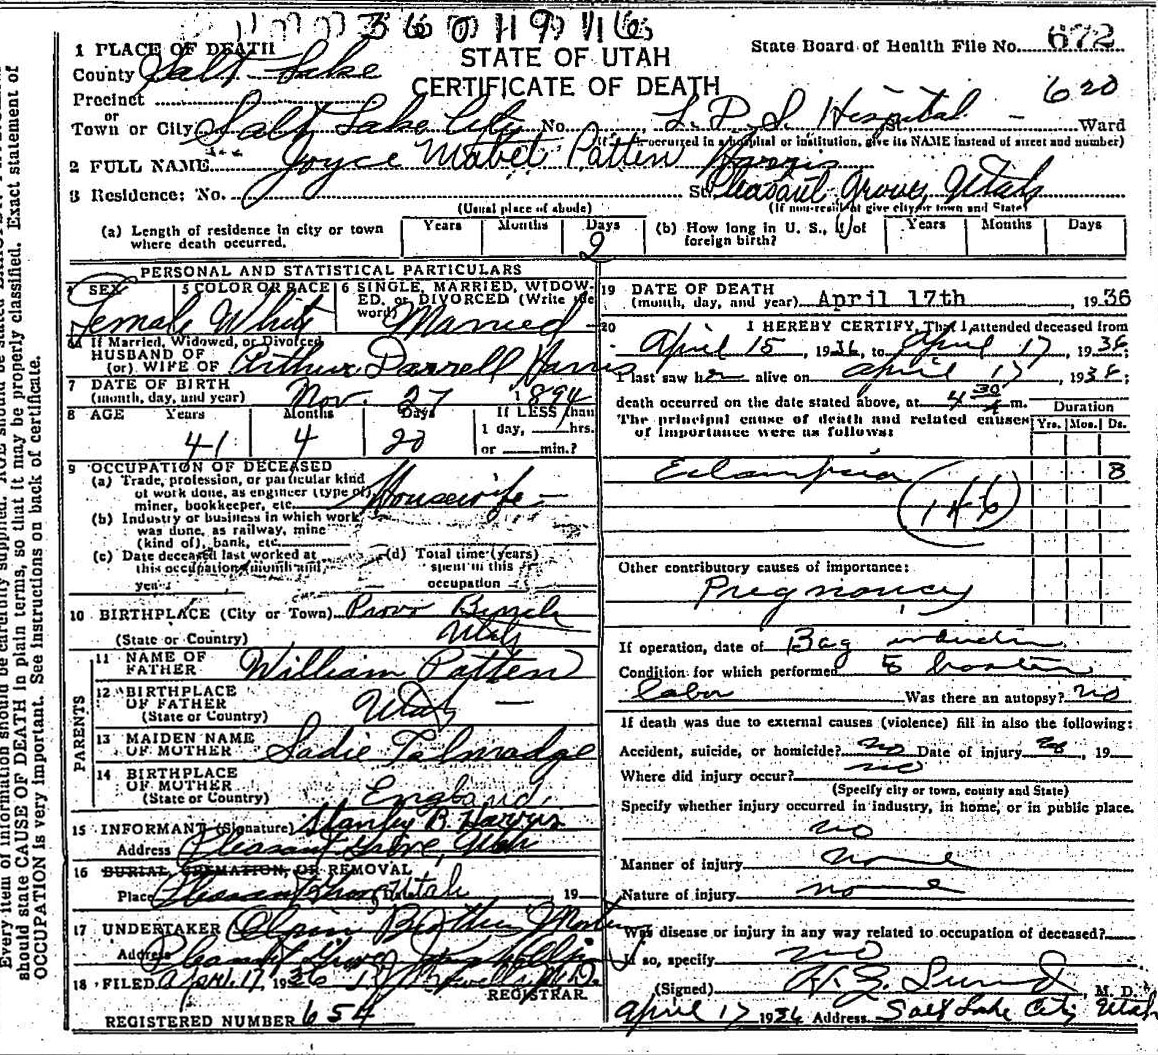 36 0 119 116
STATE OF UTAH
CERTIFICATE OF DEATH
State Board of Health File No. 672
620
1 PLACE OF DEATH
County Salt Lake
Precinct
or
Town or City Salt Lake City No. L. D. S. Hospital St. Ward
(If death occurred in a hospital or institution, give its NAME instead of street and number)
2 FULL NAME Joyce Mabel Patten Harris
3 Residence: No. St. Pleasant Grove, Utah
(Usual place of abode) (If non-resident give city or town and State)
(a) Length of residence in city or town where death occurred. Years Months Days 2
(b) How long in U. S., if of foreign birth? Years Months Days
PERSONAL AND STATISTICAL PARTICULARS
4 SEX Female
5 COLOR OR RACE White
6 SINGLE, MARRIED, WIDOWED, or DIVORCED (Write the word) Married
If Married, Widowed, or Divorced
HUSBAND OF
(or) WIFE OF Arthur Darrell Harris
7 DATE OF BIRTH
(month, day, and year) Nov. 27 1894
8 AGE Years 41 Months 4 Days 20 If LESS than
1 day, hrs.
or min.?
9 OCCUPATION OF DECEASED
(a) Trade, profession, or particular kind
of work done, as engineer (type of)
miner, bookkeeper, etc. Housewife
(b) Industry or business in which work
was done, as railway, mine
(kind of), bank, etc.
(c) Date deceased last worked at
this occupation (month and
year)
(d) Total time (years)
spent in this
occupation
10 BIRTHPLACE (City or Town) Provo Bench
(State or Country) Utah
PARENTS
11 NAME OF
FATHER William Patten
12 BIRTHPLACE
OF FATHER
(State or Country) Utah
13 MAIDEN NAME
OF MOTHER Sadie Talmadge
14 BIRTHPLACE
OF MOTHER
(State or Country) England
15 INFORMANT (Signature) Stanley B. Harris
Address Pleasant Grove, Utah
16 BURIAL, CREMATION, OR REMOVAL
Place Pleasant Grove Utah Date 19
17 UNDERTAKER Olpin Brothers
Address Pleasant Grove
18 FILED April 17, 1936 M.D.
REGISTRAR
REGISTERED NUMBER 654
19 DATE OF DEATH
(month, day, and year) April 17th, 1936
20 I HEREBY CERTIFY, That I attended deceased from
April 15, 1936, to April 17, 1936;
I last saw her alive on April 17, 1936;
death occurred on the date stated above, at 4 30 m.
The principal cause of death and related causes
of importance were as follows:
Duration
Yrs. Mos. Ds.
Eclampsia 8
146
Other contributory causes of importance:
Pregnancy
If operation, date of Bag induction
Condition for which performed
labor Was there an autopsy? no
If death was due to external causes (violence) fill in also the following:
Accident, suicide, or homicide? no Date of injury no, 19
Where did injury occur? no
(Specify city or town, county and State)
Specify whether injury occurred in industry, in home, or in public place.
no
Manner of injury none
Nature of injury none
Was disease or injury in any way related to occupation of deceased?
If so, specify no
(Signed) H. Z. Lund, M. D.
April 17 1936 Address Salt Lake City Utah
Every item of information should be carefully supplied. AGE should be stated
should state CAUSE OF DEATH in plain terms, so that it may be properly classified. Exact statement of
OCCUPATION is very important. See instructions on back of certificate.